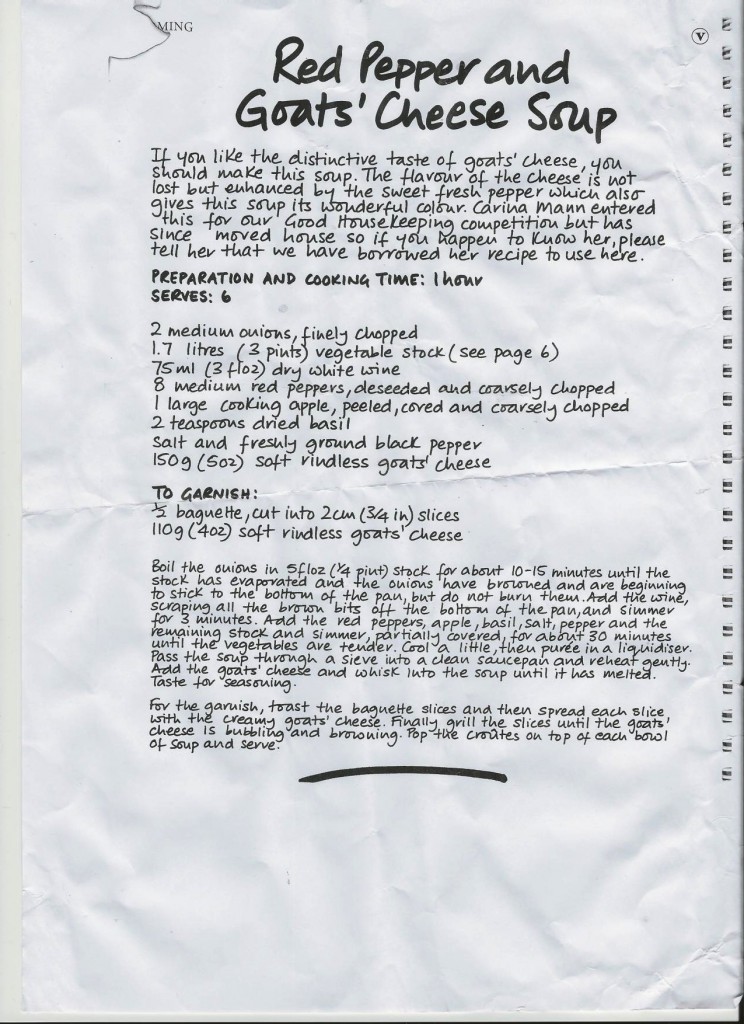 MING
V
Red Pepper and
Goats' Cheese Soup
If you like the distinctive taste of goats' cheese, you
should make this soup. The flavour of the cheese is not
lost but enhanced by the sweet fresh pepper which also
gives this soup its wonderful colour. Carina Mann entered
this for our Good Housekeeping competition but has
since moved house so if you happen to know her, please
tell her that we have borrowed her recipe to use here.
PREPARATION AND COOKING TIME: 1 hour
SERVES: 6
2 medium onions, finely chopped
1.7 litres (3 pints) vegetable stock (see page 6)
75ml (3 floz) dry white wine
8 medium red peppers, deseeded and coarsely chopped
1 large cooking apple, peeled, cored and coarsely chopped
2 teaspoons dried basil
salt and freshly ground black pepper
150g (5oz) soft rindless goats' cheese
TO GARNISH:
½ baguette, cut into 2cm (3/4 in) slices
110g (4oz) soft rindless goats' cheese
Boil the onions in 5floz (¼ pint) stock for about 10-15 minutes until the
stock has evaporated and the onions have browned and are beginning
to stick to the bottom of the pan, but do not burn them. Add the wine,
scraping all the brown bits off the bottom of the pan, and simmer
for 3 minutes. Add the red peppers, apple, basil, salt, pepper and the
remaining stock and simmer, partially covered, for about 30 minutes
until the vegetables are tender. Cool a little, then purée in a liquidiser.
Pass the soup through a sieve into a clean saucepan and reheat gently.
Add the goats' cheese and whisk into the soup until it has melted.
Taste for seasoning.
For the garnish, toast the baguette slices and then spread each slice
with the creamy goats' cheese. Finally grill the slices until the goats'
cheese is bubbling and browning. Pop the croûtes on top of each bowl
of soup and serve.